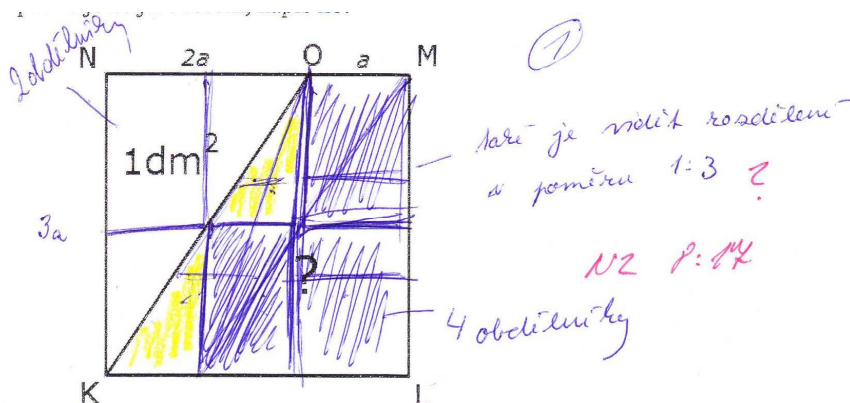 2 obdélníky
N 2a O a M
1
1dm²
také je vidět rozdělení
v poměru 1:3 ?
3a
?
4 obdélníky
K L